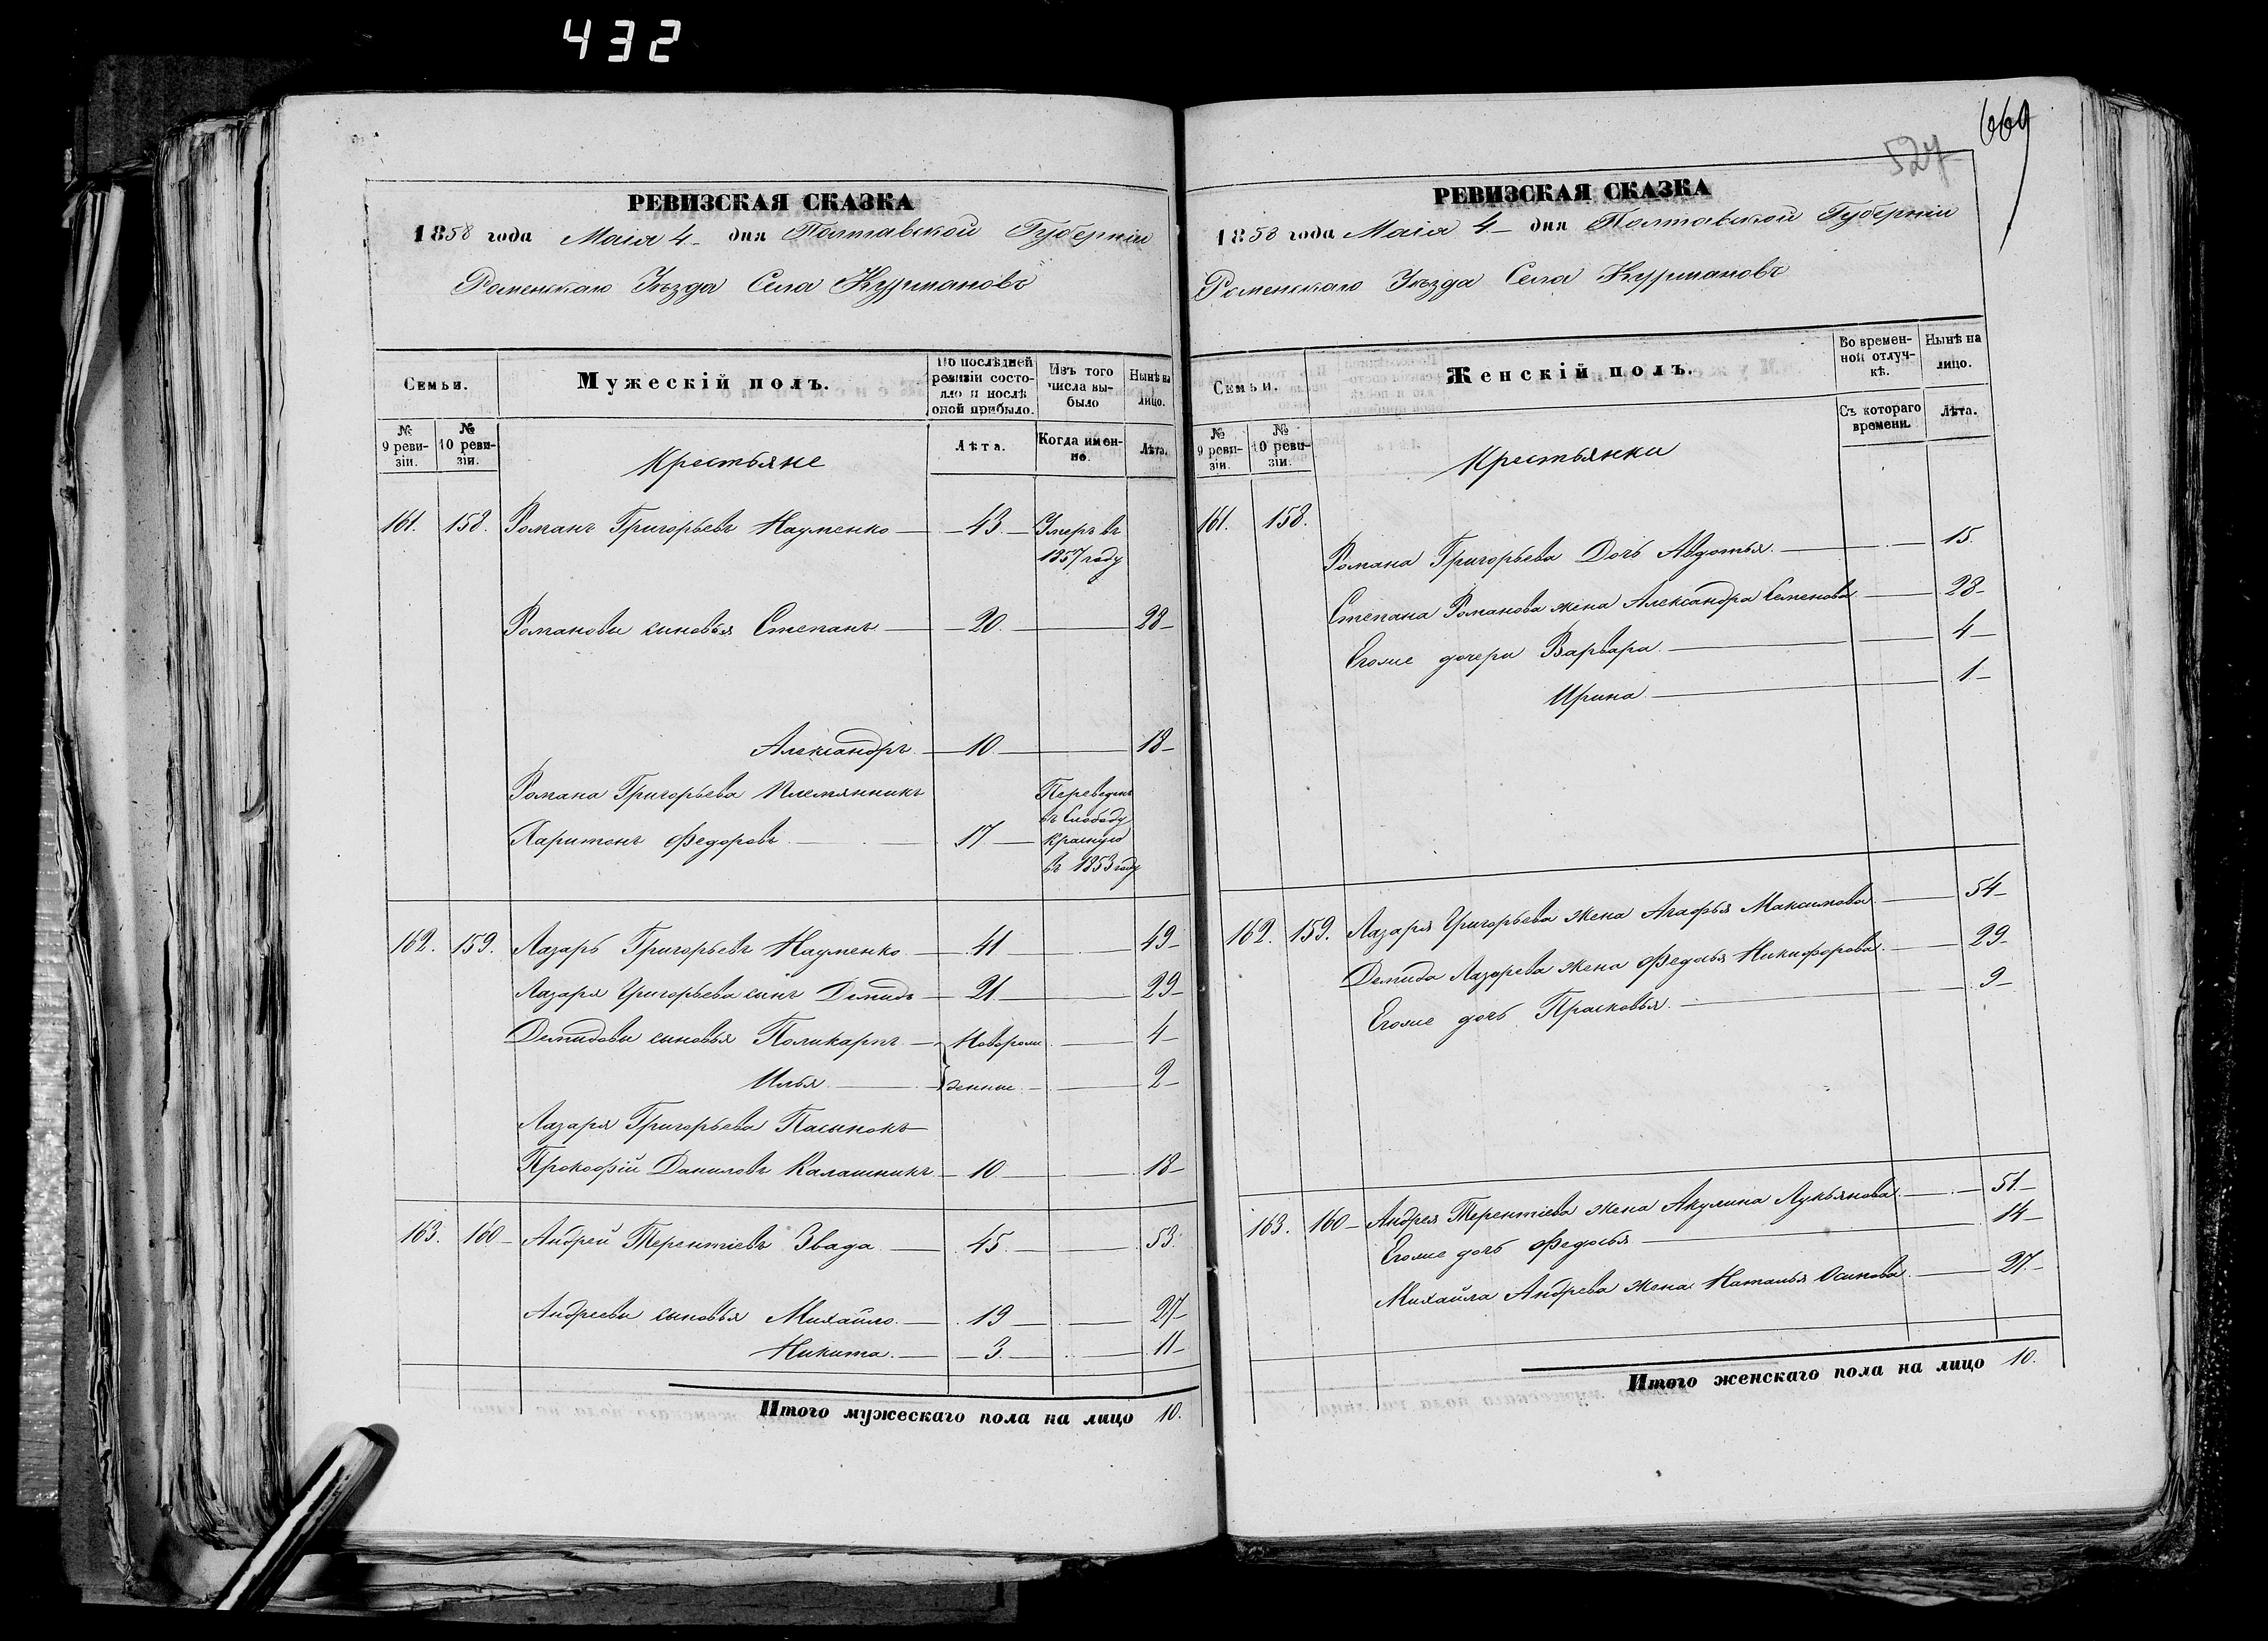 432
РЕВИЗСКАЯ СКАЗКА
1858 года Маія 4 дня Полтавской Губерніи
Роменскаго Уѣзда Села Курмановъ
Семьи.
Мужескій полъ.
По послѣдней ревизіи состояло и послѣ оной прибыло.
Изъ того числа выбыло
Нынѣ на лицо.
№ 9 ревизіи.
№ 10 ревизіи.
Лѣта.
Когда именно.
Лѣта.
Крестьяне
161. 158. Романъ Григорьевъ Науменко 43 Умеръ въ
1857 году
Романовы сыновья Степанъ 20 28
Александръ 10 18
Романа Григорьева Племянникъ Переведенъ
въ Слободу
Харитонъ Федоровъ 17 Красную
въ 1853 году
162. 159. Лазарь Григорьевъ Науменко 41 49
Лазаря Григорьева сынъ Демидъ 21 29
Демидовы сыновья Поликарпъ Новорож 4
Илья денные 2
Лазаря Григорьева Пасынокъ
Прокофій Даниловъ Калашникъ 10 18
163. 160 Андрей Терентіевъ Звада 45 53
Андреевы сыновья Михайло 19 27
Никита 3 11
Итого мужескаго пола на лицо 10.
669
527
РЕВИЗСКАЯ СКАЗКА
1858 года Маія 4 дня Полтавской Губерніи
Роменскаго Уѣзда Села Курмановъ
Семьи.
Женскій полъ.
Во временной отлучкѣ.
Нынѣ на лицо.
№ 9 ревизіи.
№ 10 ревизіи.
Съ котораго времени.
Лѣта.
Крестьянки
161. 158.
Романа Григорьева Дочь Авдотья 15
Степана Романова жена Александра Семенова 28
Егоже дочери Варвара 4
Ирина 1
162. 159. Лазаря Григорьева жена Агафья Максимова 54
Демида Лазарева жена Федосья Никифорова 29
Егоже дочь Прасковья 9
163. 160 Андрея Терентіева жена Акулина Лукьянова 51
Егоже дочь Федосья 14
Михайла Андреева жена Наталья Осипова 27
Итого женскаго пола на лицо 10.